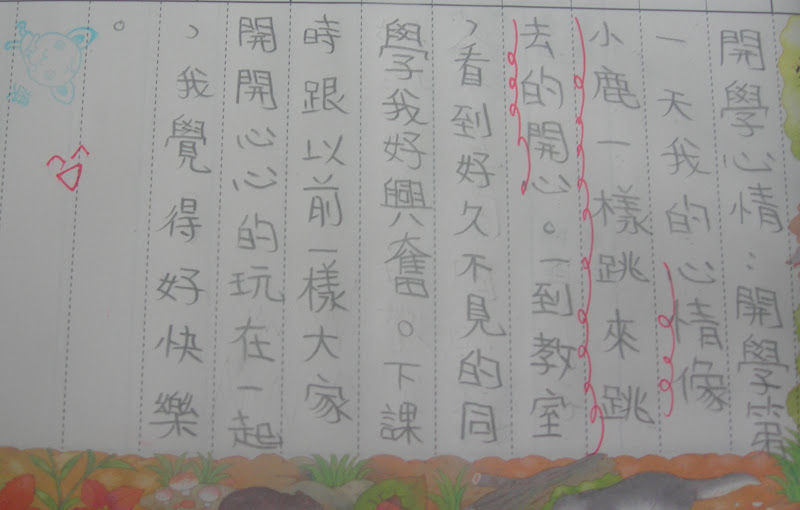 開學心情：開學第
一天我的心情像
小鹿一樣跳來跳
去的開心。一到教室
，看到好久不見的同
學我好興奮。下課
時跟以前一樣大家
開開心心的玩在一起
，我覺得好快樂
。